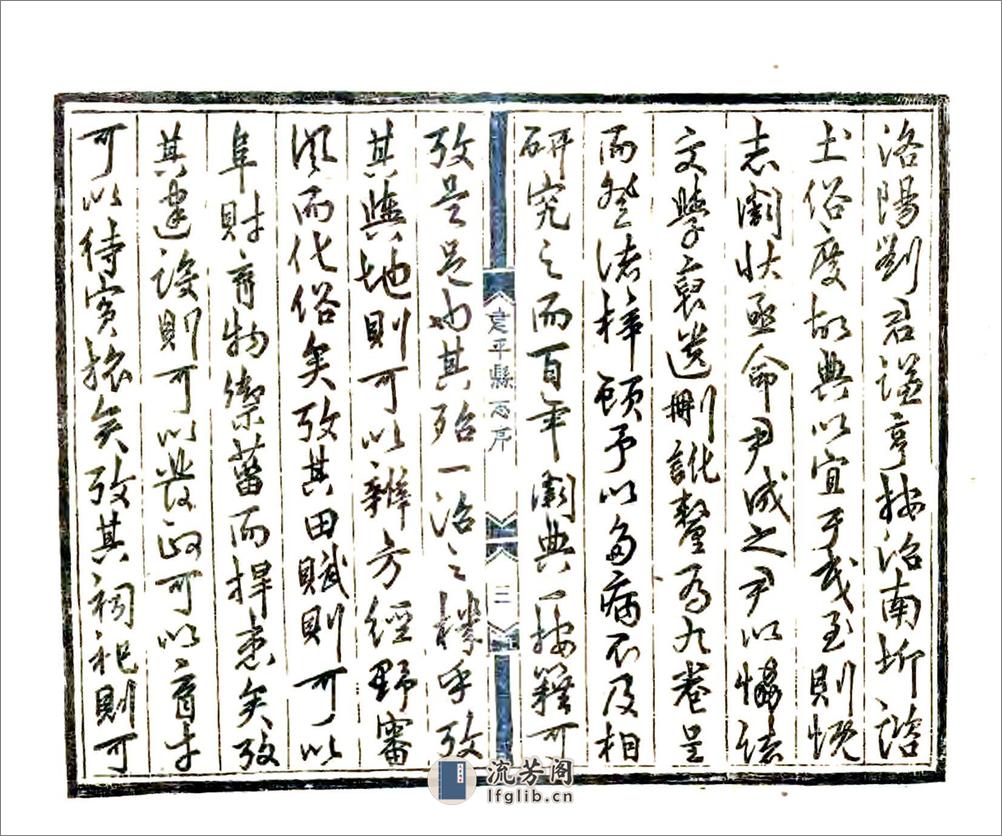 洛陽劉君謐亭按治南圻諮
土俗度故典以宜于我至則慨
志闕狀亟命尹成之尹以懼諸
文學裒遺刪訛釐為九卷呈
而登諸梓顧予以多病不及相
研究之而百年闕典一按籍可
建平縣志序
三
攷是足也其殆一治之機乎攷
其輿地則可以辨方經野審
風而化俗矣攷其田賦則可以
阜財育物禦菑而捍患矣攷
其建設則可以發政可以育才
可以待賓旅矣攷其祠祀則可
流芳阁
lfglib.cn